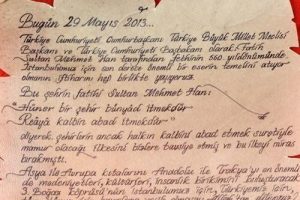 Bugün 29 Mayıs 2013...
Türkiye Cumhuriyeti Cumhurbaşkanı Türkiye Büyük Millet Meclisi
Başkanı ve Türkiye Cumhuriyeti Başbakanı olarak; Fatih
Sultan Mehmet Han tarafından fethinin 560. yıldönümünde
İstanbulumuz için son derece önemli bir eserin temelini atıyor
olmanın iftiharını hep birlikte yaşıyoruz.
Bu şehrin fatihi Sultan Mehmet Han:
Hüner bir şehir bünyâd itmekdür
Reâyâ kalbin abad itmekdür
diyerek, şehirlerin ancak halkın kalbini abad etmek suretiyle
mamur olacağı ilkesini bizlere tavsiye etmiş ve bu ilkeyi miras
bırakmıştı.
Asya ile Avrupa kıtalarını Anadolu ile Trakya'yı en önemli
de medeniyetleri, kültürleri, insanlık birikimini buluşturacak
3. Boğaz Köprüsü'nün İstanbulumuz için, Türkiyemiz için,